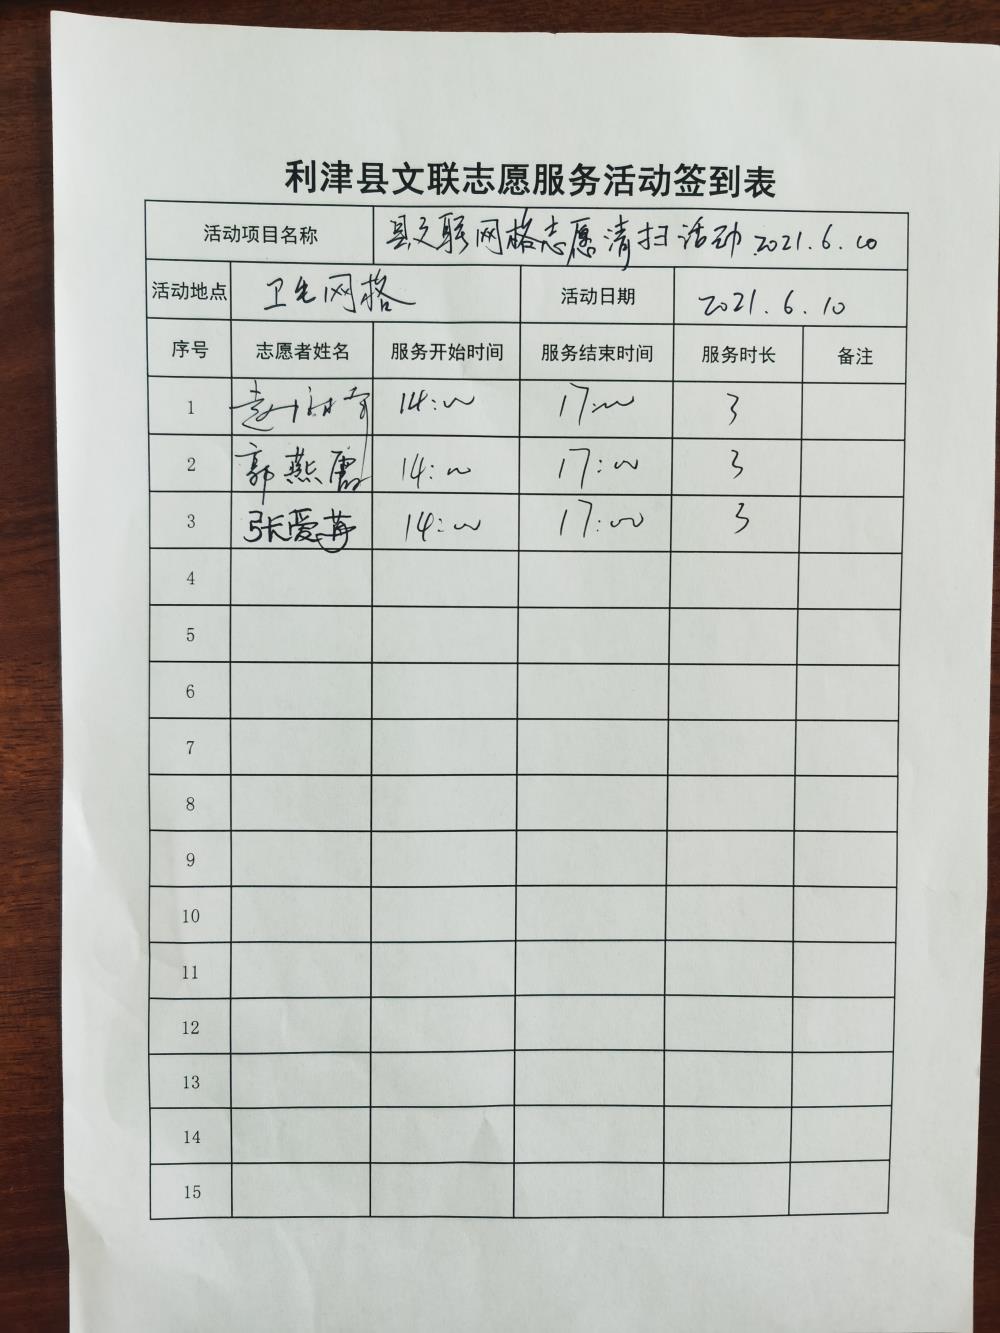 利津县文联志愿服务活动签到表
活动项目名称 县文联网格志愿清扫活动 2021.6.10
活动地点 卫生网格 活动日期 2021.6.10
序号 志愿者姓名 服务开始时间 服务结束时间 服务时长 备注
1 赵 14:00 17:00 3
2 郭燕 14:00 17:00 3
3 张爱苒 14:00 17:00 3
4
5
6
7
8
9
10
11
12
13
14
15